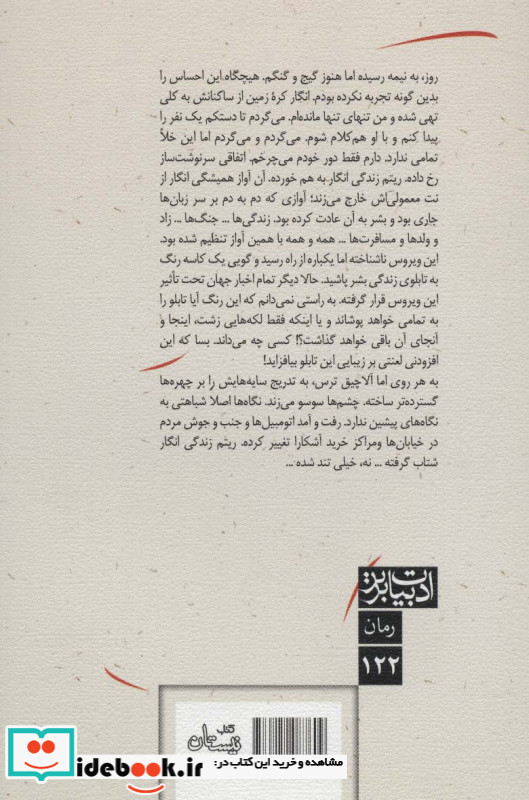 روز، به نیمه رسیده اما هنوز گیج و گنگم. هیچگاه این احساس را
بدین گونه تجربه نکرده بودم. انگار کرهٔ زمین از ساکنانش به کلی
تهی شده و من تنهای تنها مانده‌ام. می‌گردم تا دستکم یک نفر را
پیدا کنم و با او هم‌کلام شوم. می‌گردم و می‌گردم اما این خلأ
تمامی ندارد. دارم فقط دور خودم می‌چرخم. اتفاقی سرنوشت‌ساز
رخ داده. ریتم زندگی انگار به هم خورده. آن آواز همیشگی انگار از
نت معمولی‌اش خارج می‌زند؛ آوازی که دم به دم بر سر زبان‌ها
جاری بود و بشر به آن عادت کرده بود. زندگی‌ها ... جنگ‌ها ... زاد
و ولدها و مسافرت‌ها ... همه و همه با همین آواز تنظیم شده بود.
این ویروس ناشناخته اما یکباره از راه رسید و گویی یک کاسه رنگ
به تابلوی زندگی بشر پاشید. حالا دیگر تمام اخبار جهان تحت تأثیر
این ویروس قرار گرفته. به راستی نمی‌دانم که این رنگ آیا تابلو را
به تمامی خواهد پوشاند و یا اینکه فقط لکه‌هایی زشت، اینجا و
آنجای آن باقی خواهد گذاشت؟! کسی چه می‌داند. بسا که این
افزودنی لعنتی بر زیبایی این تابلو بیافزاید!
به هر روی اما آلاچیق ترس، به تدریج سایه‌هایش را بر چهره‌ها
گسترده‌تر ساخته. چشم‌ها سوسو می‌زند. نگاه‌ها اصلاً شباهتی به
نگاه‌های پیشین ندارد. رفت و آمد اتومبیل‌ها و جنب و جوش مردم
در خیابان‌ها ومراکز خرید آشکارا تغییر کرده. ریتم زندگی انگار
شتاب گرفته ... نه، خیلی تند شده ...
ادبیات برتر
رمان
۱۲۲
کتاب
نیستان
مشاهده و خرید این کتاب در:
idebook.ir